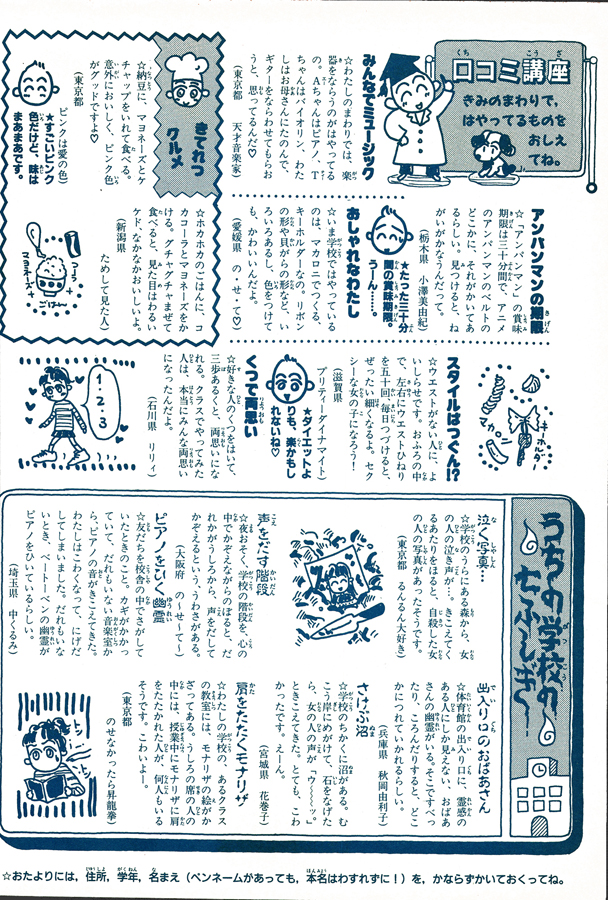 口コミ講座
きみのまわりで、
はやってるものを
おしえ
てね。
みんなでミュージック
☆わたしのまわりでは、楽
器をならうのがはやってる
の。Aちゃんはピアノ、T
ちゃんはバイオリン、わた
しはお母さんにたのんで、
ギターをならわせてもらお
うと、思ってるんだ♡
(東京都 天才音楽家)
きてれつ
グルメ
☆納豆に、マヨネーズとケ
チャップをいれて食べる。
意外においしく、ピンク色
がグッドですよ♡
(東京都 ピンクは愛の色)
★すごいピンク
色だけど、味は
まあまあです。
☆ホカホカのごはんに、コ
カコーラとマヨネーズをか
ける。グチャグチャまぜて
食べると、見た目はわるい
ケド、なかなかおいしいよ。
(新潟県 ためして見た人)
マヨネーズ
ごはん
アンパンマンの期限
☆「アンパンマン」の賞味
期限は三十分間で、アニメ
のアンパンマンのベルトの
どこかに、それがかいてあ
るらしい。見つけると、ね
がいがかなうんだって。
(栃木県 小澤美由紀)
★たった三十分
間の賞味期限。
うーん……。
おしゃれなわたし
☆いま学校ではやっている
のは、マカロニでつくる、
キーホルダーなの。リボン
の形や貝がらの形など、い
ろいろあるし、色をつけて
も、かわいいんだよ。
(愛媛県 の・せ・て♡)
キーホルダー
マカロニ
スタイルばつぐん!?
☆ウエストがない人に、よ
いしらせです。おふろの中
で、左右にウエストひねり
を五十回、毎日つづけると、
ぜったい細くなるよ。セク
シーな女の子になろう!
(滋賀県 プリティーダイナマイト)
★ダイエットよ
りも、楽かもし
れないね♡
くつで両思い
☆好きな人のくつをはいて、
三歩あるくと、両思いにな
れる。クラスでやってみた
人は、本当にみんな両思い
になったんだよ。
(石川県 リリィ)
1・2・3
うちの学校の
七ふしぎ〜
泣く写真…
☆学校のうらにある森から、女
の人の泣き声が…。きこえてく
るあたりをほると、自殺した女
の人の写真があったそうです。
(東京都 るんるん大好き)
声をだす階段
☆夜おそく、学校の階段を、心の
中でかぞえながらのぼると、だ
れかがうしろから、声をだして
かぞえるという、うわさがある。
(大阪府 の〜せ〜て〜)
ピアノをひく幽霊
☆友だちを校舎の中でさがして
いたときのこと。カギがかかっ
ていて、だれもいない音楽室か
ら、ピアノの音がきこえてきた。
わたしはこわくなって、にげだ
してしまいました。だれもいな
いとき、ベートーベンの幽霊が
ピアノをひいているらしい。
(埼玉県 中くるみ)
出入り口のおばあさん
☆体育館の出入り口に、霊感の
ある人にしか見えない、おばあ
さんの幽霊がいる。そこですべっ
たり、ころんだりすると、どこ
かにつれていかれるらしい。
(兵庫県 秋岡由利子)
さけぶ沼
☆学校のちかくに沼がある。む
こう岸にめがけて、石をなげた
ら、女の人の声が、「ウ〜〜〜ッ。」
ときこえてきた。とても、こわ
かったです。えーん。
(宮城県 花巻子)
肩をたたくモナリザ
☆わたしの学校の、あるクラス
の教室には、モナリザの絵がか
ざってある。うしろの席の人の
中には、授業中にモナリザに肩
をたたかれた人が、何人もいる
そうです。こわいよー。
(東京都 のせなかったら昇龍拳)
トントン
☆おたよりには，住所，学年，名まえ（ペンネームがあっても，本名はわすれずに！）を，かならずかいておくってね。